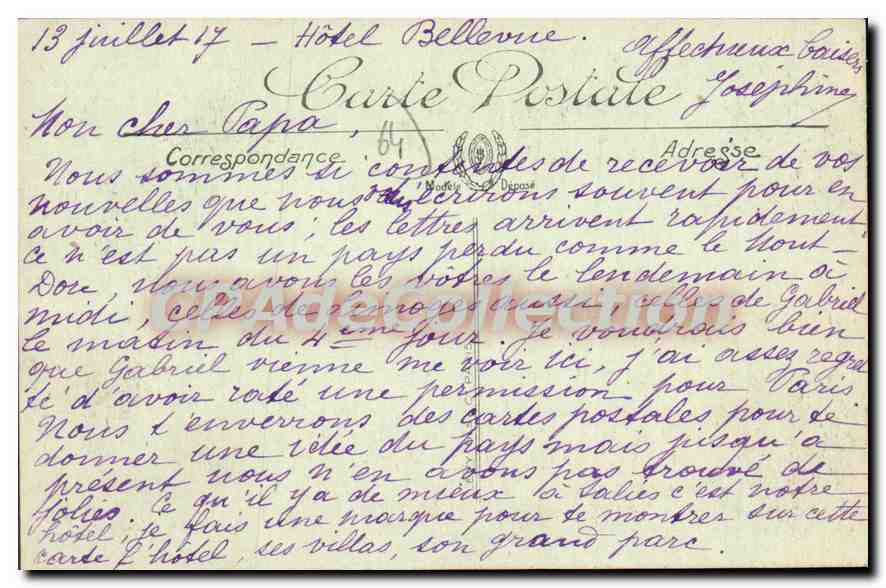 13 juillet 17 — Hôtel Bellevue.
affectueux baisers
Joséphine
Carte Postale
Mon cher Papa,
64
Correspondance
Adresse
Modèle Déposé
Nous sommes si contentes de recevoir de vos
nouvelles que nous écrirons souvent pour en
avoir de vous ; les lettres arrivent rapidement
ce n'est pas un pays perdu comme le Mont-
Dore, nous avons les vôtres le lendemain à
midi, celles de Limoges aussi, celles de Gabriel
le matin du 4ème jour. Je voudrais bien
que Gabriel vienne me voir ici, j'ai assez regret
té d'avoir raté une permission pour Paris
Nous t'enverrons des cartes postales pour te
donner une idée du pays mais jusqu'à
présent nous n'en avons pas trouvé de
jolies. Ce qu'il y a de mieux à Salies c'est notre
hôtel ; je fais une marque pour te montrer sur cette
carte l'hôtel, ses villas, son grand parc.
CPAdeCollection